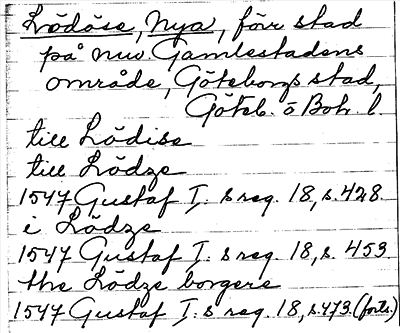 Lödöse, Nya, förr stad
på nuv. Gamlestadens
område, Göteborgs stad,
Göteb. o Boh. l.
till Lödise
till Lödze
1547 Gustaf I. s reg. 18, s. 428.
i Lödze
1547 Gustaf I. s reg. 18, s. 453
the Lödze borgere
1547 Gustaf I. s reg. 18, s. 473. (forts.)